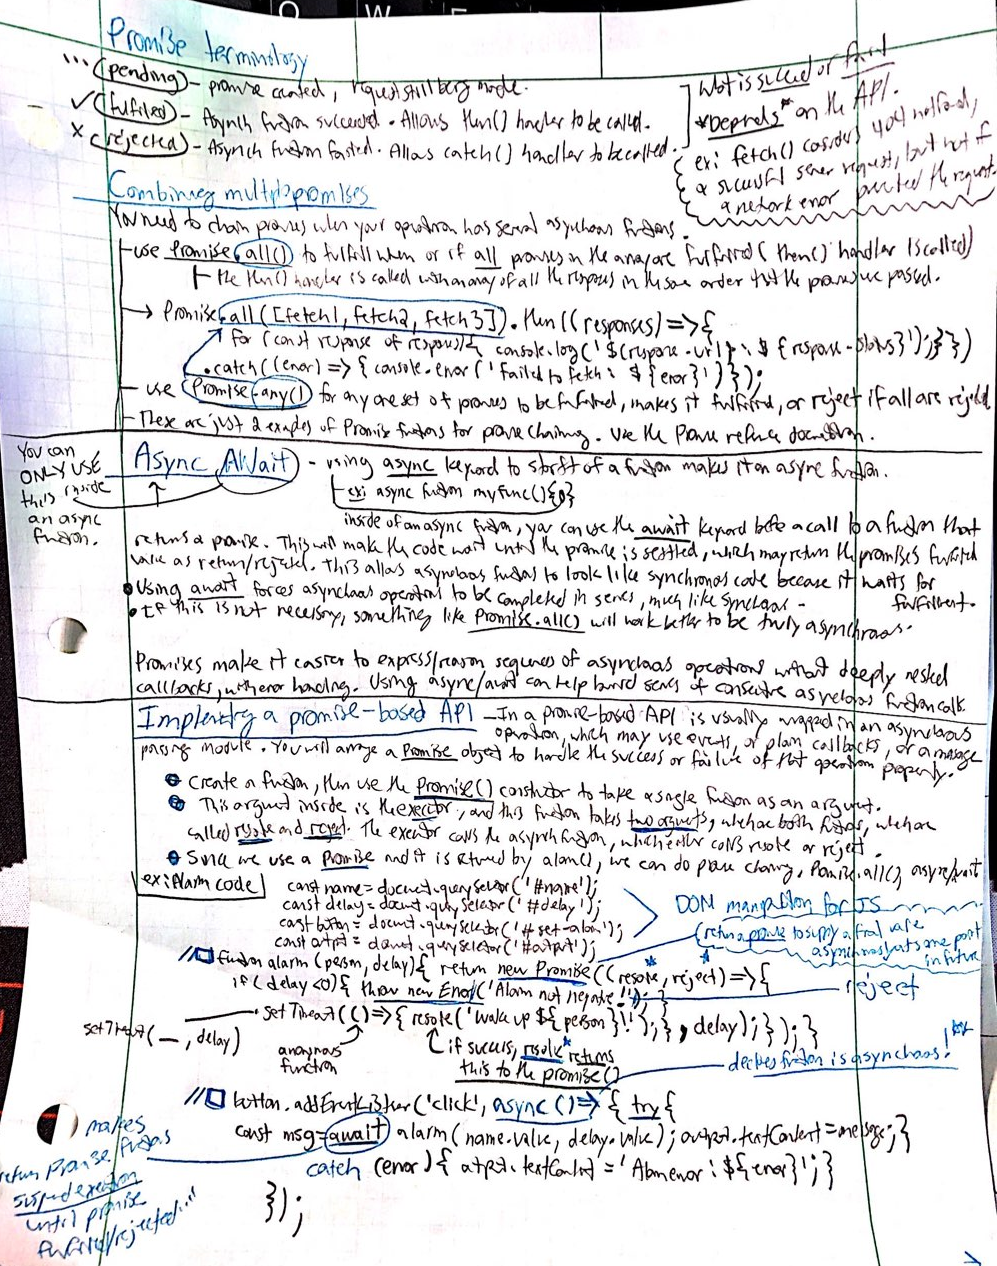 Promise terminology
... (pending) - promise created, request still being made.
✓ (fulfilled) - Asynch function succeeded. Allows then() handler to be called.
x (rejected) - Asynch function failed. Allows catch() handler to be called.
What is succeed or failed
*Depends* on the API.
ex: fetch() considers 404 not found,
a successful server request, but not if
a network error prevented the request.
Combining multiple promises
You need to chain promises when your operation has several asynchronous functions.
- use Promise.all() to fulfill when or if all promises in the array are fulfilled (then() handler is called)
the then() handler is called with an array of all the responses in the same order that the promises were passed.
→ Promise.all([fetch1, fetch2, fetch3]).then((responses) => {
for (const response of responses) { console.log('${response.url}: ${response.status}');}})
.catch((error) => { console.error('Failed to fetch: ${error}')});
- use Promise.any() for any one set of promises to be fulfilled, makes it fulfilled, or reject if all are rejected
- These are just 2 examples of Promise functions for promise chaining. Use the Promise reference documentation.
You can
ONLY USE
this inside
an async
function.
Async Await - using async keyword to start of a function makes it an async function.
ex: async function myFunc(){}
inside of an async function, you can use the await keyword before a call to a function that
returns a promise. This will make the code wait until the promise is settled, which may return the promises fulfilled
value as return/rejected. This allows asynchronous functions to look like synchronous code because it waits for
fulfillment.
• Using await forces asynchronous operations to be completed in series, much like synchronous -
• If this is not necessary, something like Promise.all() will work better to be truly asynchronous.
Promises make it easier to express/reason sequences of asynchronous operations without deeply nested
callbacks, with error handling. Using async/await can help build series of consecutive asynchronous function calls
Implementing a promise-based API - In a promise-based API is usually wrapped in an asynchronous
operation, which may use events, or plain callbacks, or a message
passing module. You will arrange a Promise object to handle the success or failure of that operation properly.
• Create a function, then use the Promise() constructor to take a single function as an argument.
• This argument inside is the executor, and this function takes two arguments, which are both functions, which are
called resolve and reject. The executor calls the asynch function, which either calls resolve or reject.
• Since we use a promise and it is returned by alarm(), we can do promise chaining, Promise.all(), async/await
ex: Alarm code
const name = document.querySelector('#name');
const delay = document.querySelector('#delay');
const button = document.querySelector('#set-alarm');
const output = document.querySelector('#output');
DOM manipulation for JS
(return a promise to supply a final value
asynchronously at some point
in future
// function alarm(person, delay){ return new Promise((resolve, reject) => {
if (delay <0){ throw new Error('Alarm not negative!'); }
reject
setTimeout(() => { resolve('Wake up ${person}!'); }, delay); }); }
setTimeout(—, delay)
anonymous
function
if success, resolve* returns
this to the promise()
declares function is asynchronous!
// button.addEventListener('click', async () => { try {
const msg = await alarm(name.value, delay.value); output.textContent = message; }
catch (error) { output.textContent = 'Alarm error: ${error}'; }
});
makes
return Promise functions
suspend execution
until promise
fulfilled/rejected...